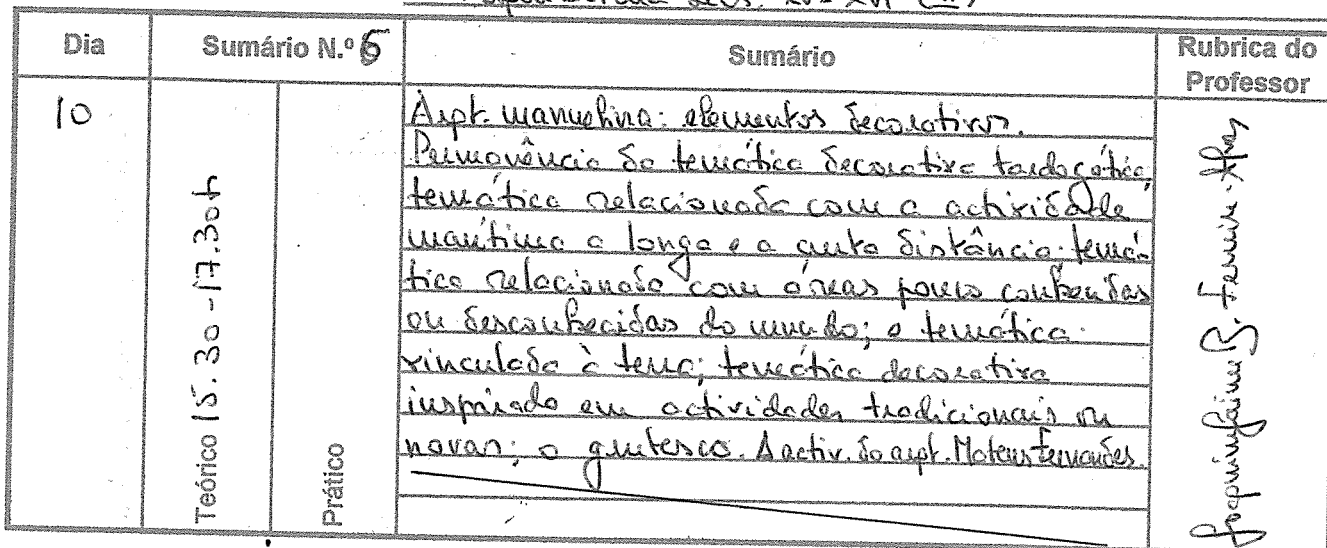 Sécs. XV-XVI (II)
Dia
Sumário N.º 6
Sumário
Rubrica do
Professor
10
Teórico 15.30-17.30h
Prático
Arqt. manuelina: elementos decorativos.
Permanência da temática decorativa tardogótica,
temática relacionada com a actividade
marítima a longa e a curta distância; temá-
tica relacionada com áreas pouco conhecidas
ou desconhecidas do mundo; a temática
vinculada à terra; temática decorativa
inspirada em actividades tradicionais ou
novas; o grutesco. A activ. do arqt. Mateus Fernandes.
Joaquim Jaime B. Ferreira-Alves